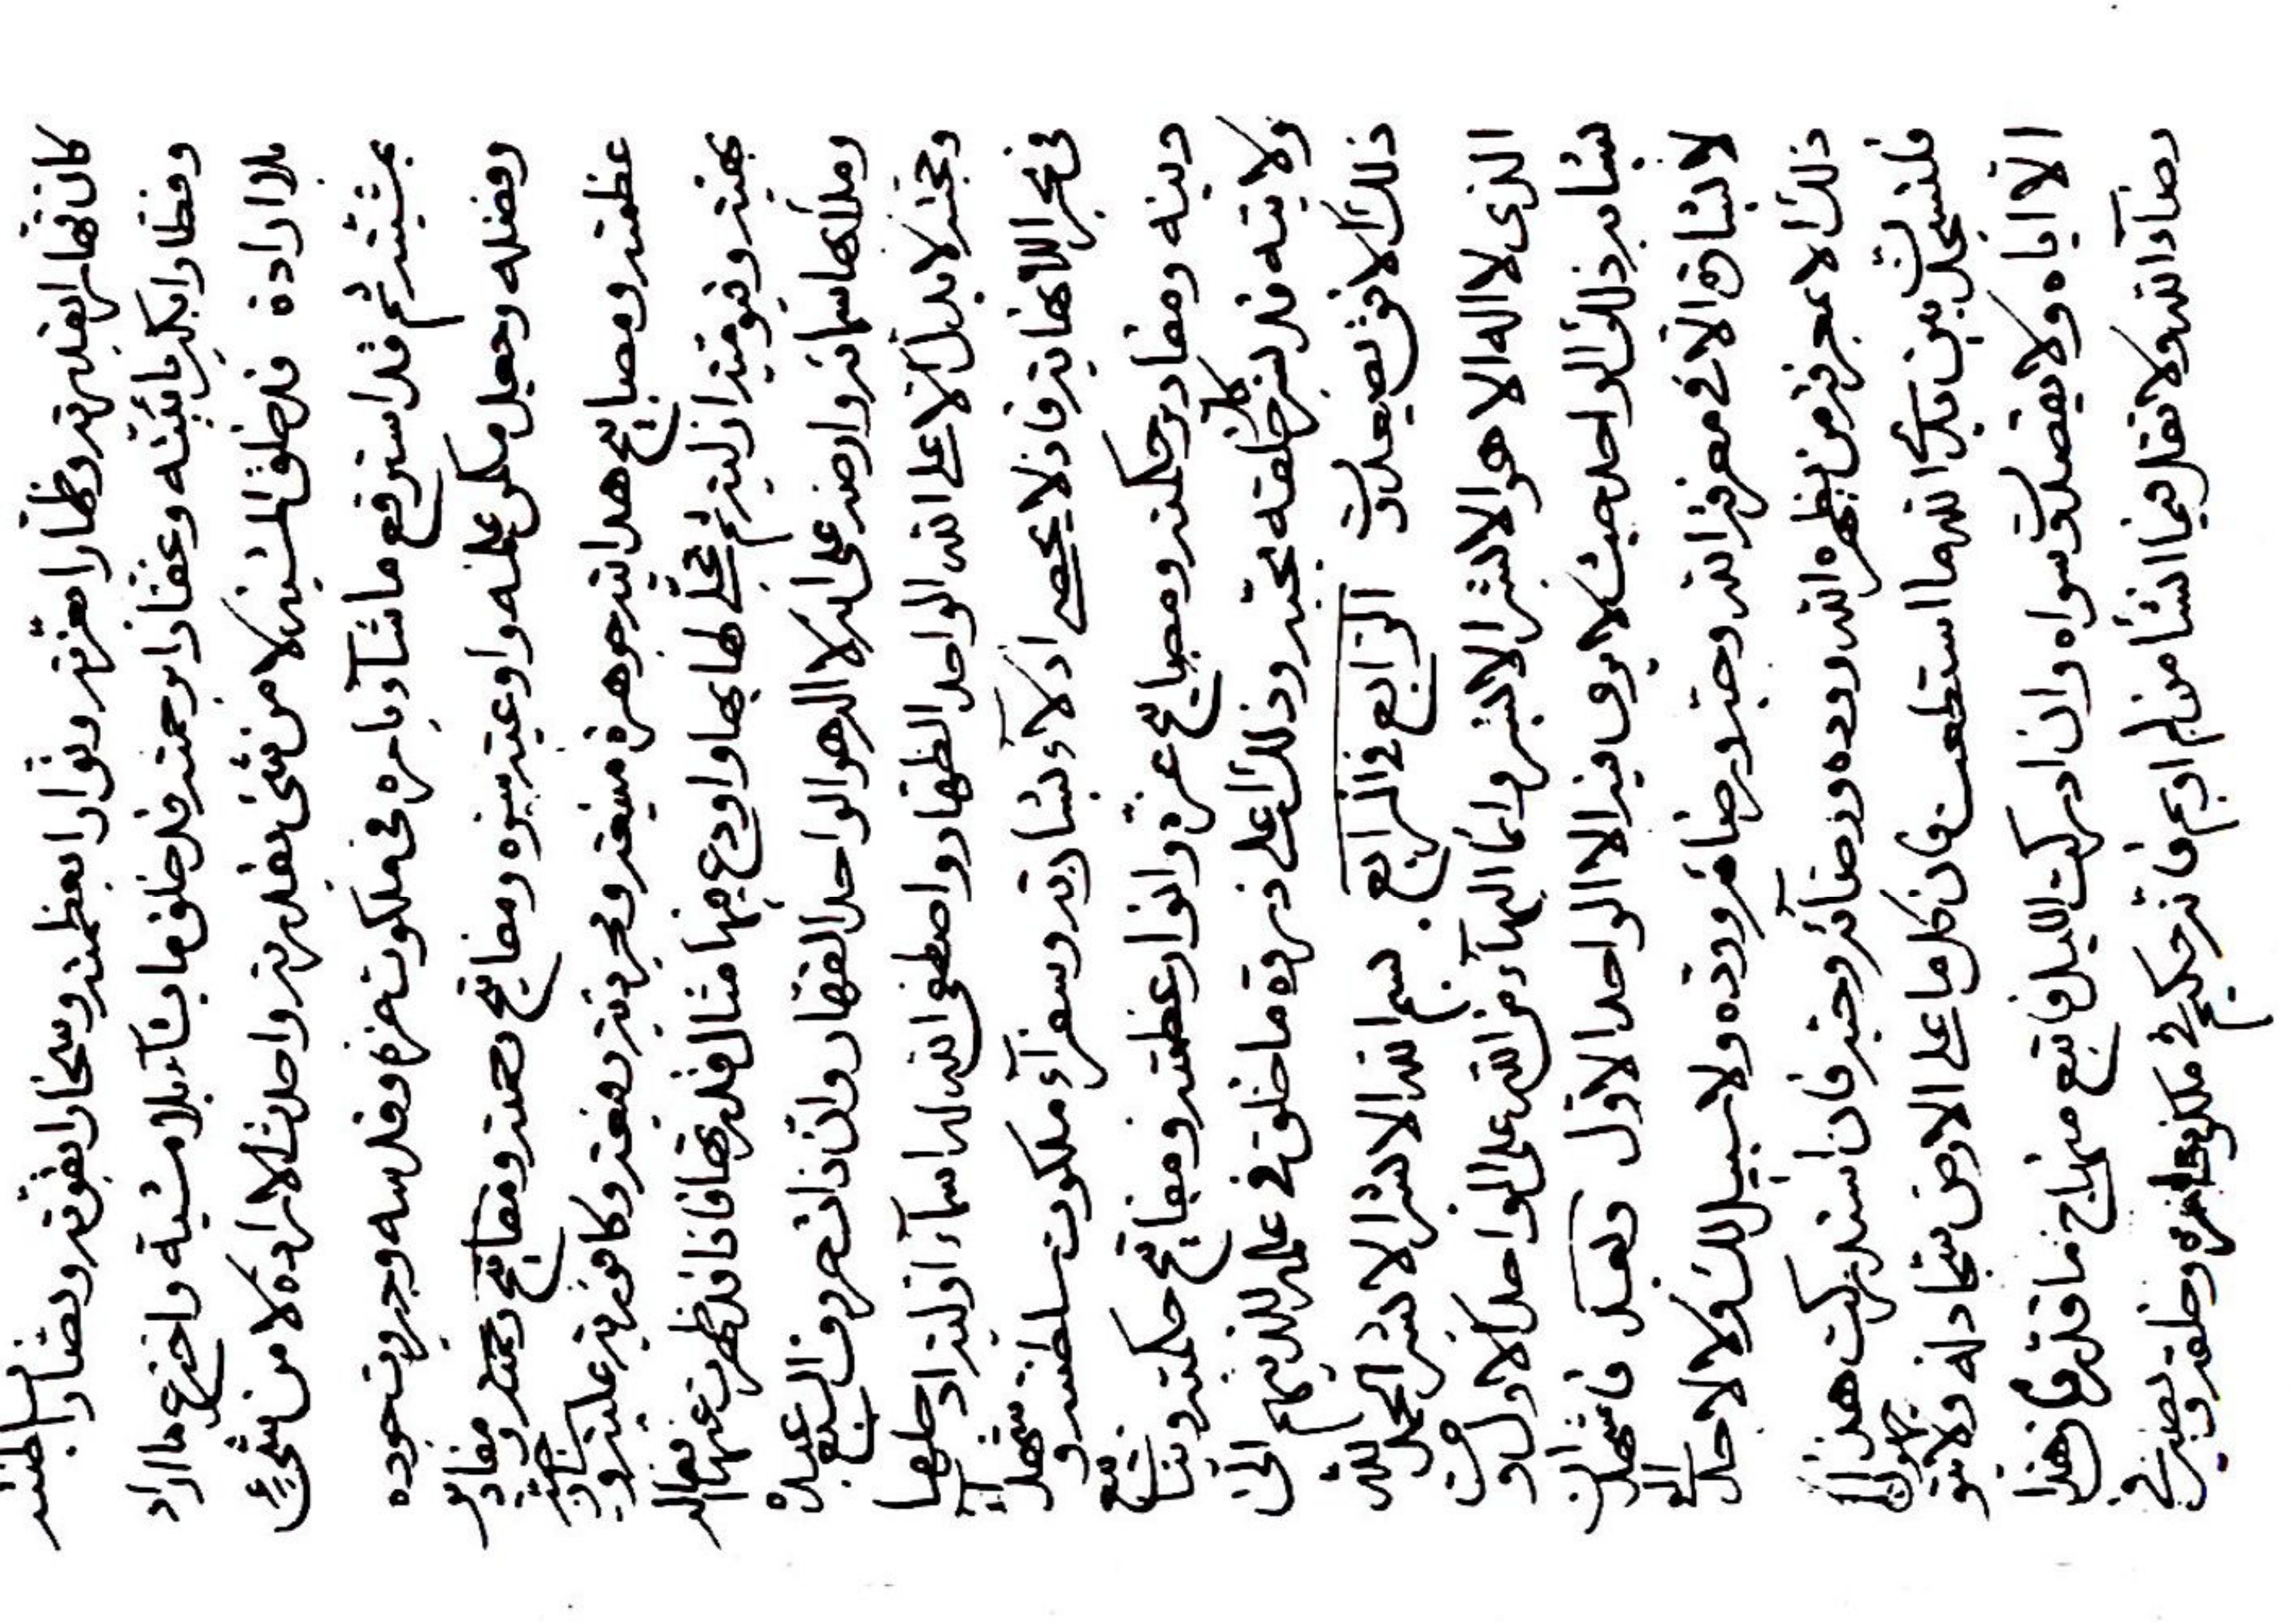 كان قهارا بقدرته وظهارا بعزته ونوارا بعظمته وسخارا بقوته ونصارا بسلطنته
وفظارا بكبريائيته وغفارا برحمته قد خلق ما يشاء بلا مشية واخترع ما اراد
بلا ارادة قد خلق المشية لا من شئ بقدرته واحدث الارادة لا من شئ
بمشيته ثم قد استرفع ما شاء بامره في ملكوت عزه وقدسه وجبروت جوده
وفضله وجعل مكمن علمه واوعية سره ومفاتيح رحمته ومفاتيح حكمته ومقادير
عظمته ومصابيح هدايته جوهرة مينعة ومجردية رفيعة وكافورية علية
بهية وقيومية ازلية ثم تجلى لها بها واودع فيها مثال قدرتها فاذا قد ظهرت عنها افعاله
وملأ بها سمائه وارضه على انه لا اله الا هو الواحد القهار وان ذات حروف السبع عبده
وحجته لا بدل الا على الله الواحد الظهار واصطفى الله له اسماء اولية اد جعلها
في بحر اللانهاية فاذ لا يحصى ادلاء بشارته وسفراء ملكوت سلطنته و شهداء
دينه ومقادير حكمته ومصابيح عزة وانوار عظمته ومفاتيح حكمته
ولايته قد نزه كل خلقه بحبه وذلك اعلى ذروة ما خلق في علمه للذينهم الى
ذلك الافق تصيعدون الرابع في الرابع
بسم الله الابشر الابشر الابشر الابشر الحمد لله
الذي لا اله الا هو الابشر الابشر وانما البهاء من الله على الواحد الاول ومن
يشابه ذلك الواحد حيث لا يرى فيه الا الواحد الاول وبعد فاشهد ان
لا لشان الا في معرفة الله وحبه ورضائه ووده ولا سبيل لك ولا لاحد الى
ذلك الا بمعرفة من يظهره الله ووده ورضائه وحبه فان استدركت هذا
فلتسجدن بين يدي الله ما استطعت فان كل ما على الارض سجاد له ولا
الا اياه ولا يقصدون سواه وان ادركت الليل فاتبع منهاج ما قدر فان هذا
رضاء الله ولا تقل فيما انشأ من لم او بم فانه حكيم في مكمن امره وخلقه وبصير في